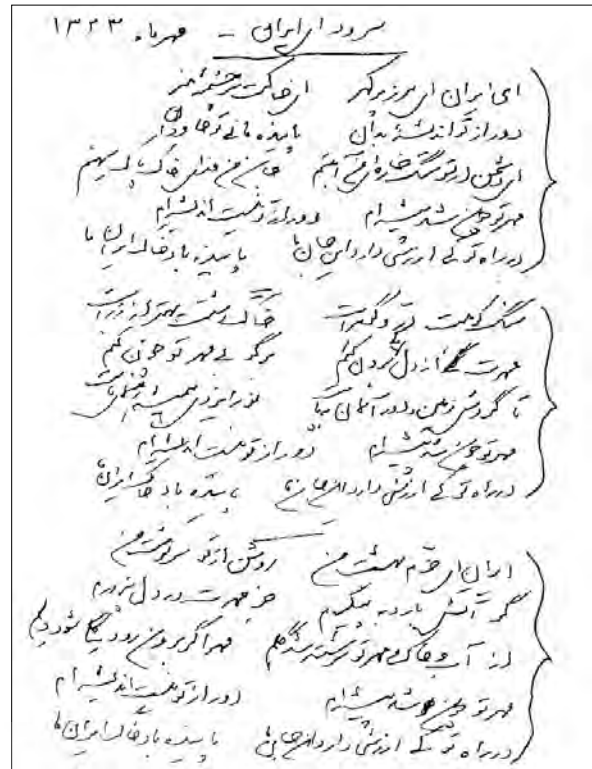 سرود ای ایران - مهرماه ۱۳۲۳
ای ایران ای مرز پرگهر ای خاکت سرچشمه هنر
دور از تو اندیشه بدان پاینده مانی تو جاودان
ای دشمن ار تو سنگ خاره‌ای من آهنم جان من فدای خاک پاک میهنم
مهر تو چون شد پیشه‌ام دور از تو نیست اندیشه‌ام
در راه تو کی ارزشی دارد این جان ما پاینده باد خاک ایران ما
سنگ کوهت در و گوهر است خاک دشتت بهتر از زر است
مهرت از دل کی برون کنم برگو بی مهر تو چون کنم
تا گردش زمین و دور آسمان بپاست نور ایزدی همیشه رهنمای ماست
مهر تو چون شد پیشه‌ام دور از تو نیست اندیشه‌ام
در راه تو کی ارزشی دارد این جان ما پاینده باد خاک ایران ما
ایران ای خرم بهشت من روشن از تو سرنوشت من
گر آتش بارد به پیکرم جز مهرت در دل نپرورم
از آب و خاک و مهر تو سرشته شد گلم مهر اگر برون رود گلی شود دلم
مهر تو چون شد پیشه‌ام دور از تو نیست اندیشه‌ام
در راه تو کی ارزشی دارد این جان ما پاینده باد خاک ایران ما